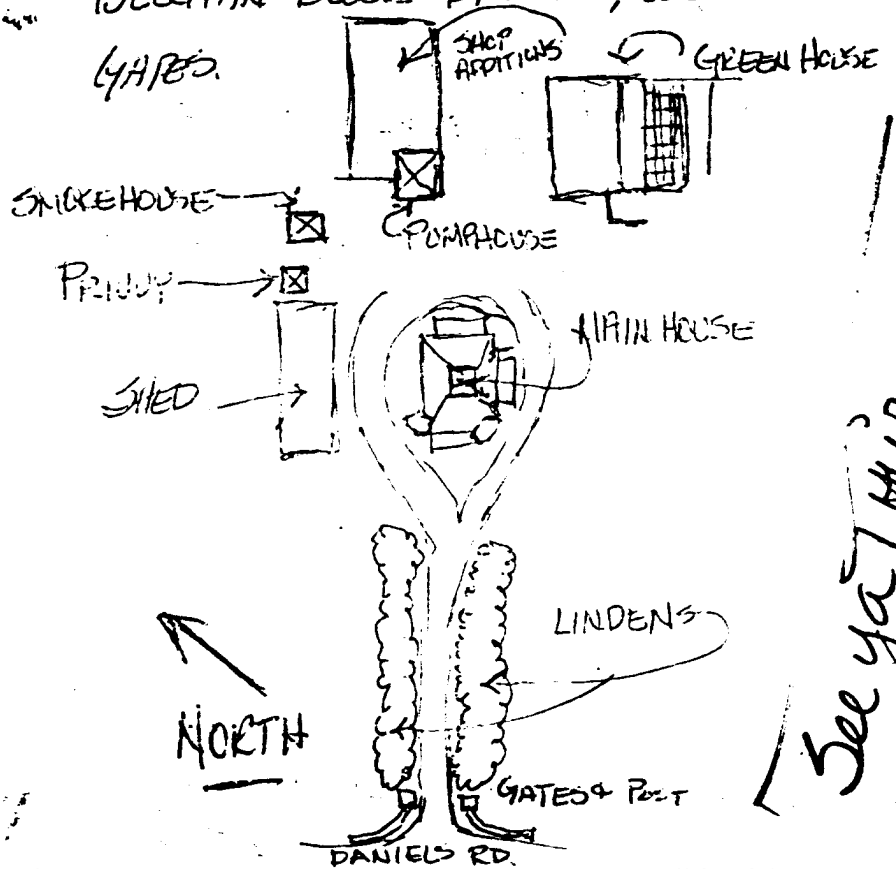 GATES.
SHOP
ADDITIONS
GREEN HOUSE
SMOKEHOUSE
PUMPHOUSE
PRIVY
MAIN HOUSE
SHED
LINDENS
NORTH
GATES & POST
DANIELS RD.
See ya